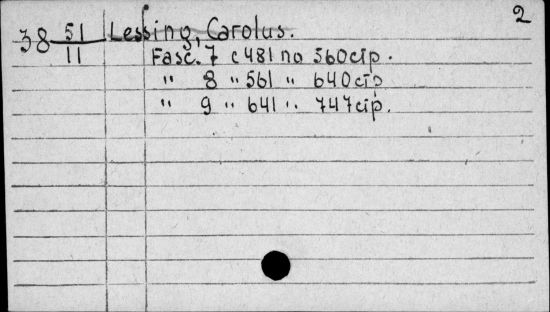 2
38 51/11 Lessing, Carolus.
Fasc. 7 c 481 no 560 cip.
" 8 " 561 " 640 cip
" 9 " 641 " 747 cip.